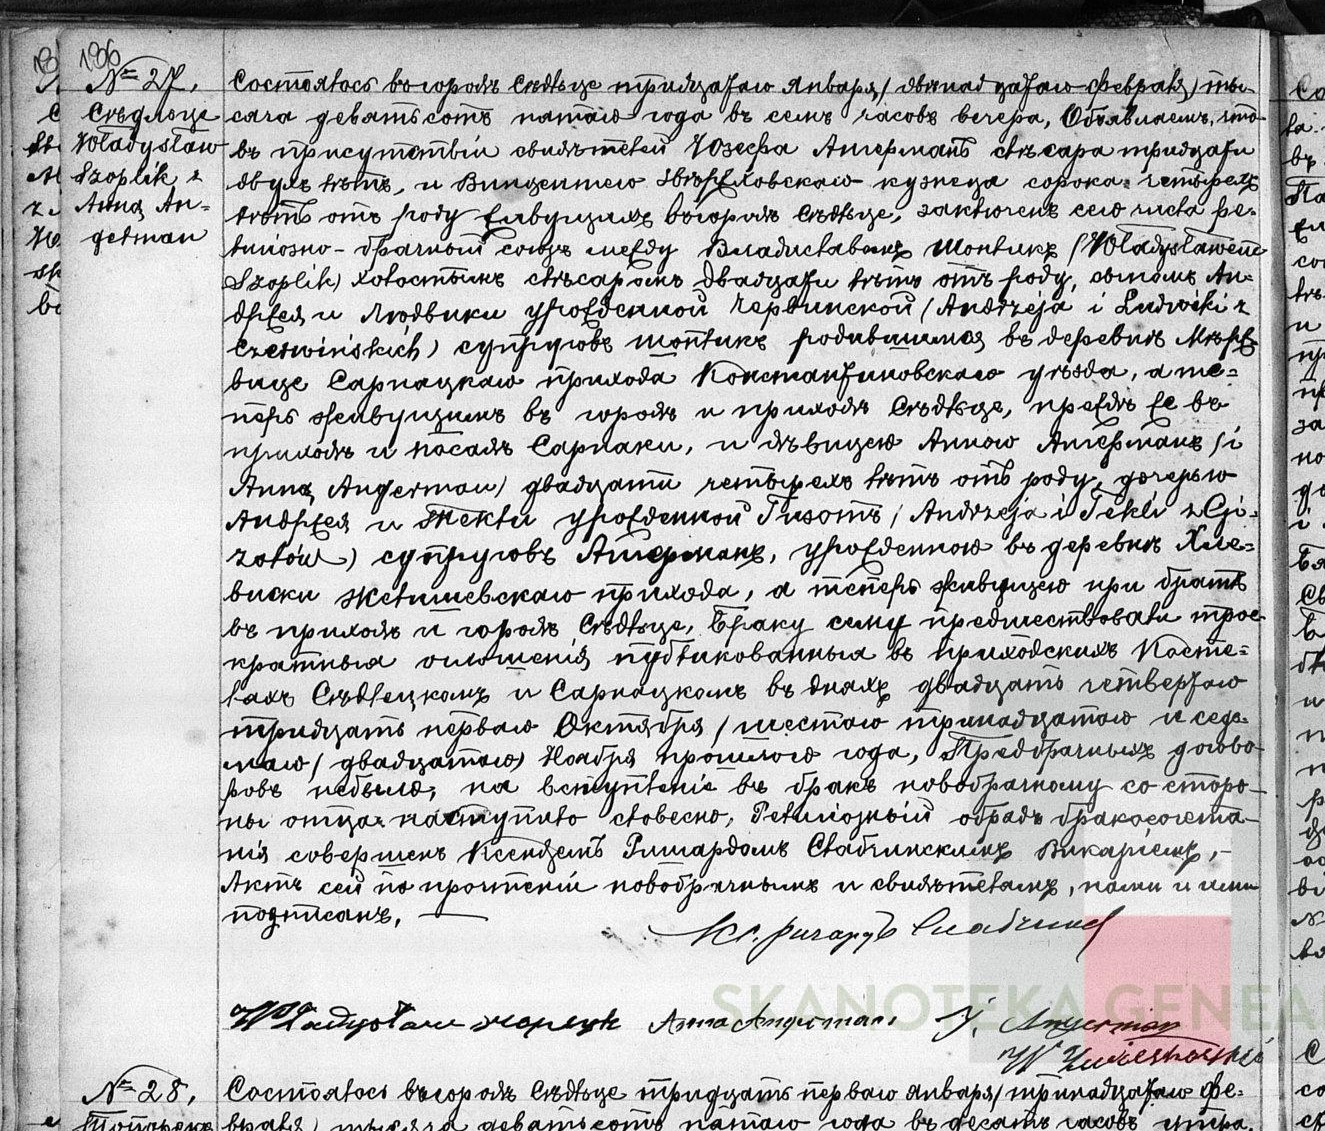 186
№ 27.
Сѣдльце
Władysław
Szoplik z
Anną An-
german
Состоялось въ городѣ Сѣдльце тридцатаго Января / двѣнадцатаго Февраля) ты-
сяча девятьсотъ пятаго года въ семь часовъ вечера, Объявляемъ, что
въ присутствіи свидѣтелей Юзефа Ангерманъ слѣсаря тридцати
двухъ лѣтъ, и Винцентего кузнеца сорока четырехъ
лѣтъ отъ роду живущихъ въ городѣ Сѣдльце, заключенъ сего числа ре-
лигіозно-брачный союзъ между Владиславомъ Шопликъ / Władysławem
Szoplik) холостымъ слѣсаремъ двадцати лѣтъ отъ роду, сыномъ Ан-
дрея и Людвики урожденной Червинской / Andrzeja i Ludwiki z
Czerwińskich) супруговъ Шопликъ родившимся въ деревнѣ Мѣрже-
вице Сарнацкаго прихода Константиновскаго уѣзда, а те-
перь живущимъ въ городѣ и приходѣ Сѣдльце, прежде же въ
приходѣ и посадѣ Сарнаки, и дѣвицею Анною Ангерманъ / i
Anną Angerman) двадцати четырехъ лѣтъ отъ роду, дочерью
Андрея и Текли урожденной Гизотъ / Andrzeja i Tekli z Gi-
zotów) супруговъ Ангерманъ, урожденною въ деревнѣ Хле-
виски прихода, а теперь живущею при братѣ
въ приходѣ и городѣ Сѣдльце, Браку сему предшествовали трое-
кратныя оглашенія, публикованныя въ приходскихъ Косте-
лахъ Сѣдлецкомъ и Сарнацкомъ въ дняхъ двадцать четвертаго
тридцать перваго Октября / шестаго тринадцатаго и седь-
маго / двадцатаго) Ноября прошлаго года, Предбрачныхъ догово-
ровъ небыло, на вступленіе въ бракъ новобрачному со сторо-
ны отца наступило словесно, Религіозный обрядъ бракосочета-
нія совершенъ Ксендземъ Ришардомъ Слабчинскимъ Викаріемъ,-
Актъ сей по прочтеніи новобрачнымъ и свидѣтелямъ, нами и ими
подписанъ,
Кс. Ричардъ Слабчинск
Władysław Anna Angerman J. Angerman
W
№ 28.
Состоялось въ городѣ Сѣдльце тридцать перваго Января / тринадцатаго Фе-
враля) тысяча девятьсотъ пятаго года въ десять часовъ утра,
SKANOTEKA GENEA